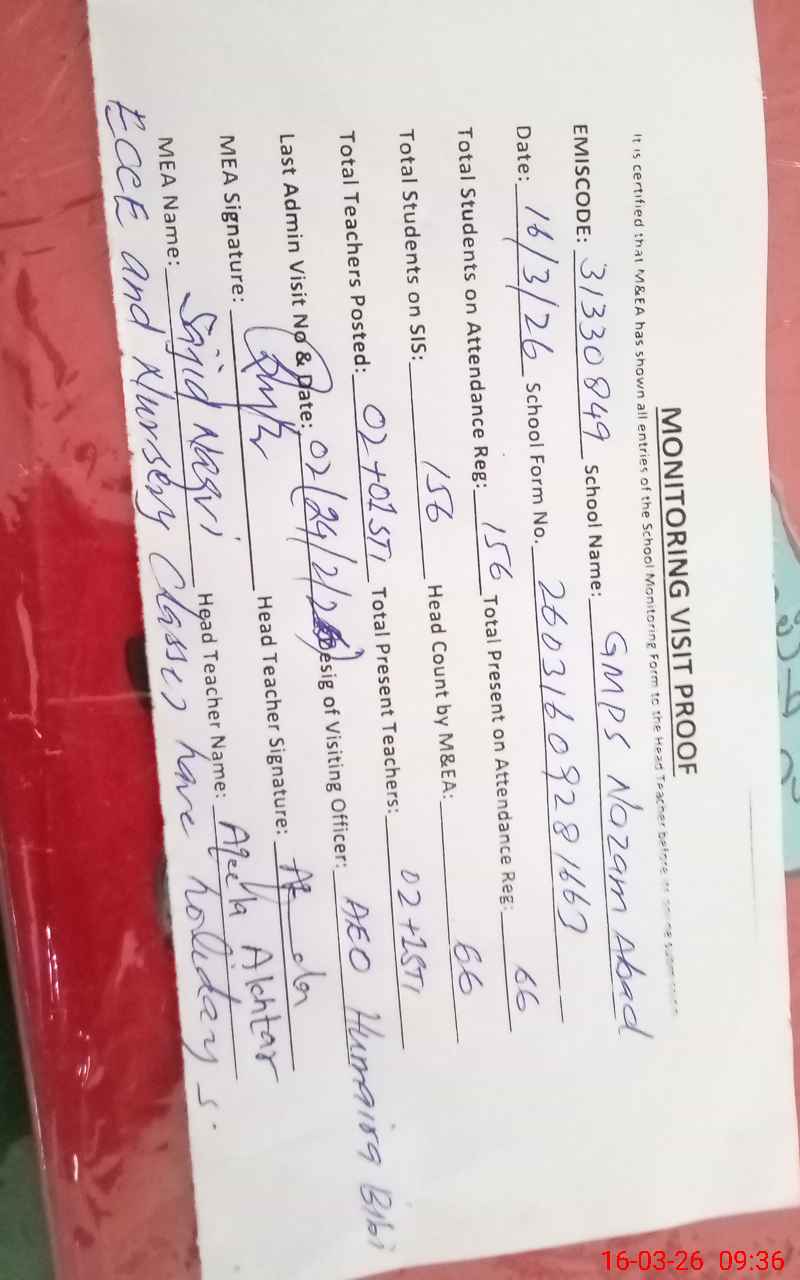 MONITORING VISIT PROOF
It is certified that M&EA has shown all entries of the School Monitoring Form to the Head Teacher before
EMISCODE: 31330849 School Name: GMPS Nazam Abad
Date: 16/3/26 School Form No. 26031609281663
Total Students on Attendance Reg: 156 Total Present on Attendance Reg: 66
Total Students on SIS: 156 Head Count by M&EA: 66
Total Teachers Posted: 02+02STI Total Present Teachers: 02+2STI
Last Admin Visit No & Date: 02(24/2/26) Desig of Visiting Officer: AEO Humaira Bibi
MEA Signature: Head Teacher Signature:
MEA Name: Sajid Naqvi Head Teacher Name: Aqeela Akhtar
ECCE and Nursery Classes have holidays.
16-03-26 09:36